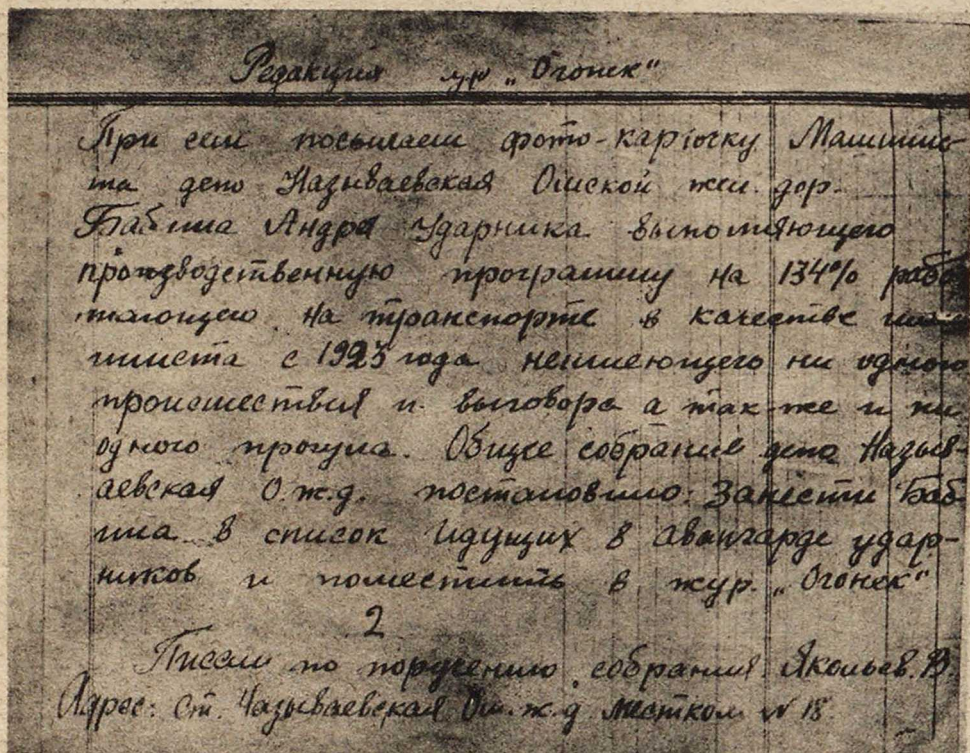 Редакция жур „Огонек“
При сем посылаем фото-карточку Машинис-
та депо Называевская Омской жел. дор.
Бабина Андрея Ударника выполняющего
производственную программу на 134% рабо
тающего на транспорте в качестве ма
шиниста с 1923 года неимеющего ни одного
происшествия и выговора а так-же и ни
одного прогула. Общее собрание депо Назыв-
аевская О.ж.д. постановило: Занести Баб-
ина в список идущих в авангарде удар-
ников и поместить в жур. „Огонек“
2
Писал по поручению собрания Яковлев. В.
Адрес: ст. Называевская Ом.ж.д местком № 18.